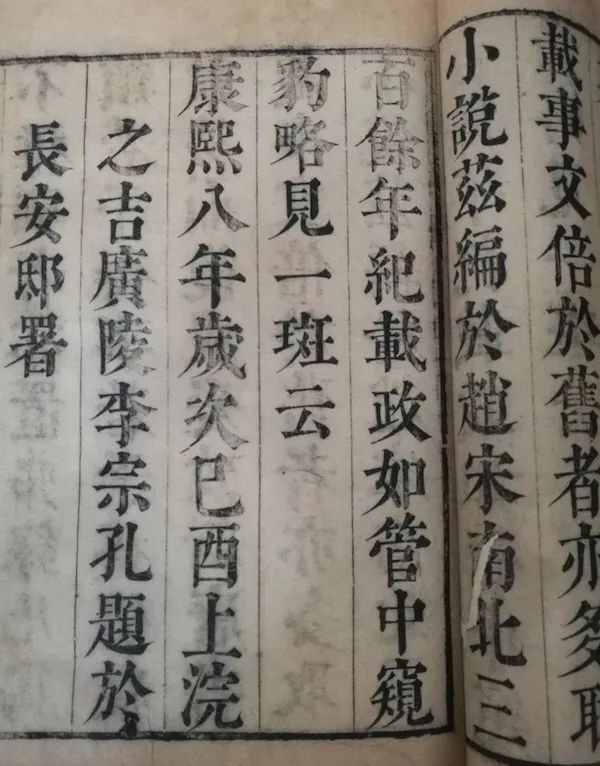 載事文倍於舊者亦多聊
小說茲編於趙宋南北三
百餘年紀載政如管中窺
豹略見一斑云
康熙八年歲次己酉上浣
之吉廣陵李宗孔題於
長安邸署